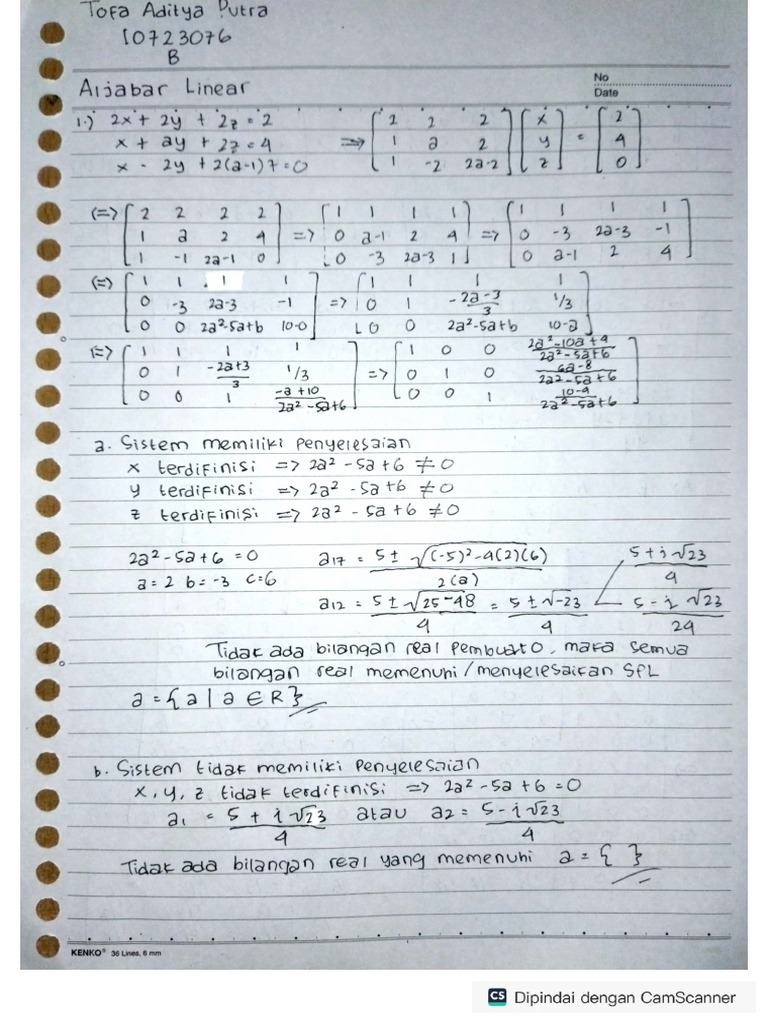 Tofa Aditya Putra
10723076
B
Aljabar Linear
No
Date
1.) 2x + 2y + 2z = 2
x + ay + 2z = 4
x - 2y + 2(a-1)z = 0
=> [2 2 2; 1 a 2; 1 -2 2a-2] [x; y; z] = [2; 4; 0]
(=>) [2 2 2 2; 1 a 2 4; 1 -1 2a-1 0] => [1 1 1 1; 0 a-1 2 4; 0 -3 2a-3 1] => [1 1 1 1; 0 -3 2a-3 -1; 0 a-1 2 4]
(=>) [1 1 1 1; 0 -3 2a-3 -1; 0 0 2a²-5a+b 10-0] => [1 1 1 1; 0 1 -2a-3/3 1/3; 0 0 2a²-5a+b 10-a]
(=>) [1 1 1 1; 0 1 -2a+3/3 1/3; 0 0 1 -a+10/2a²-5a+6] => [1 0 0 2a²-10a+4/2a²-5a+6; 0 1 0 6a-8/2a²-5a+6; 0 0 1 10-a/2a²-5a+6]
a. Sistem memiliki Penyelesaian
x terdifinisi => 2a² - 5a + 6 ≠ 0
y terdifinisi => 2a² - 5a + 6 ≠ 0
z terdifinisi => 2a² - 5a + 6 ≠ 0
2a² - 5a + 6 = 0
a = 2 b = -3 c = 6
a₁₇ = 5 ± √(-5)² - 4(2)(6) / 2(a)
a₁₂ = 5 ± √25-48 / 4 = 5 ± √-23 / 4
5 + i √23 / 4
5 - i √23 / 24
Tidak ada bilangan real, maka semua
bilangan real memenuhi / menyelesaikan SPL
a = {a | a ∈ R}
b. Sistem tidak memiliki Penyelesaian
x, y, z tidak terdifinisi => 2a² - 5a + 6 = 0
a₁ = 5 + i √23 / 4 atau a₂ = 5 - i √23 / 4
Tidak ada bilangan real yang memenuhi a = { }
KENKO® 36 Lines, 6 mm
CS Dipindai dengan CamScanner